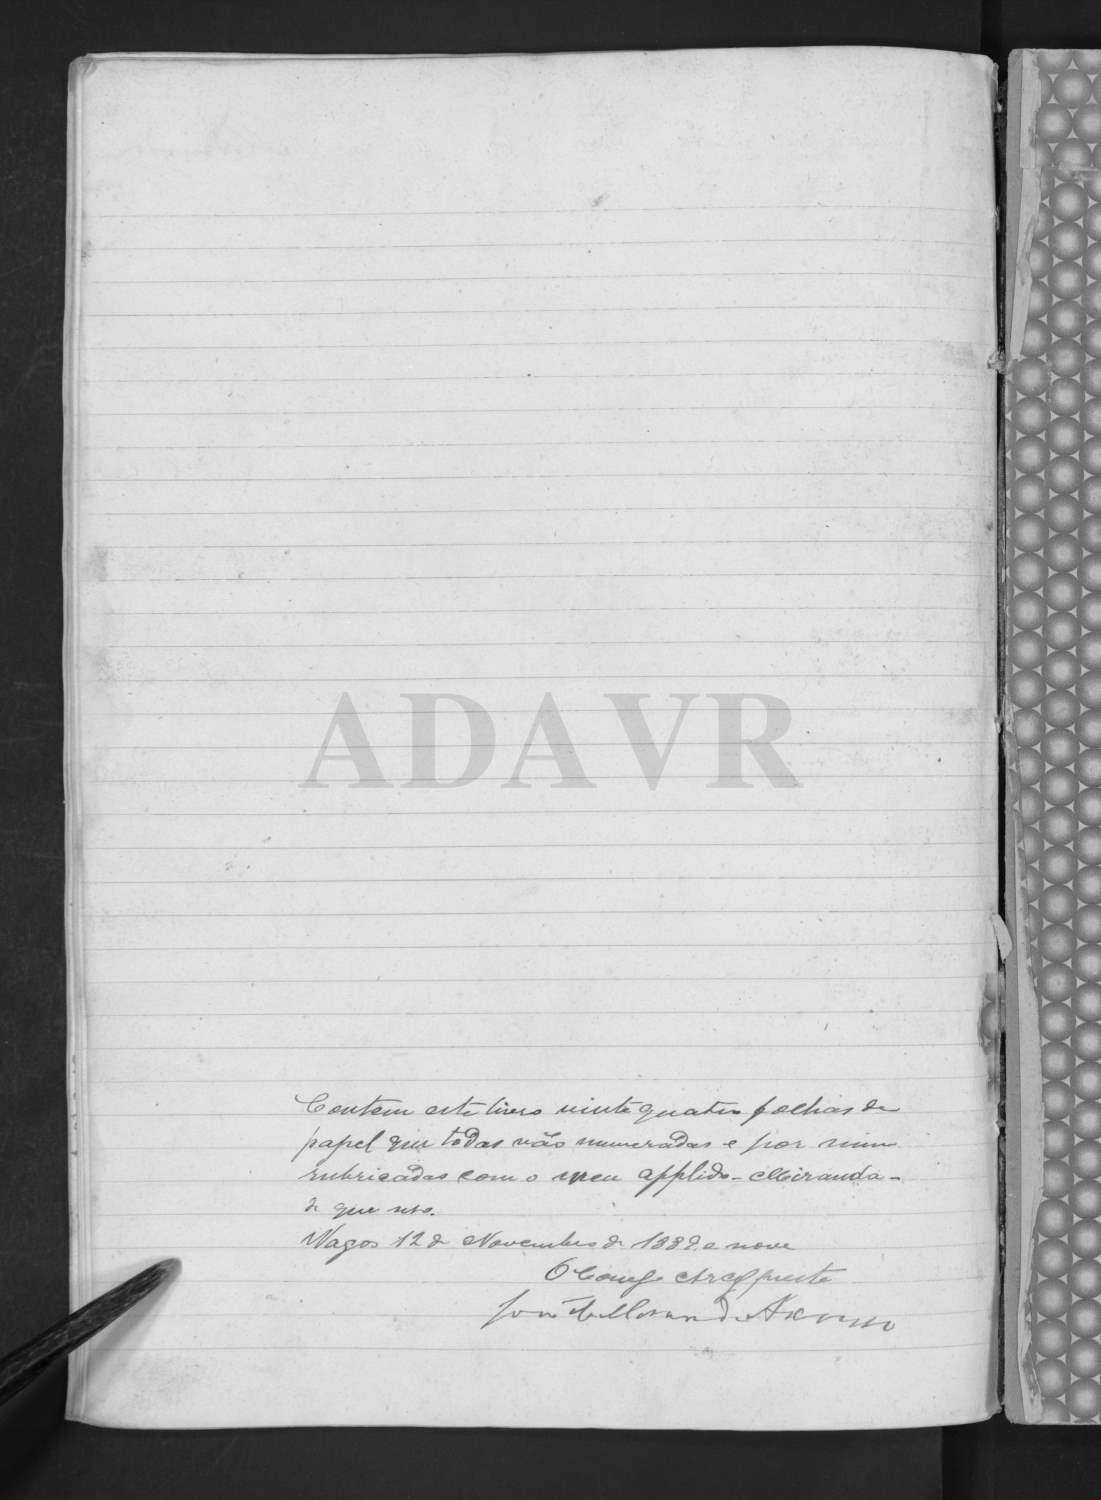 ADAVR
Contem este livro vinte quatro folhas de
papel que todas vão numeradas e por mim
rubricadas com o meu appelido - Miranda -
de que uso.
Vagos 12 de Novembro de 188 e nove
O Coneg.º Arcypreste
José Miranda